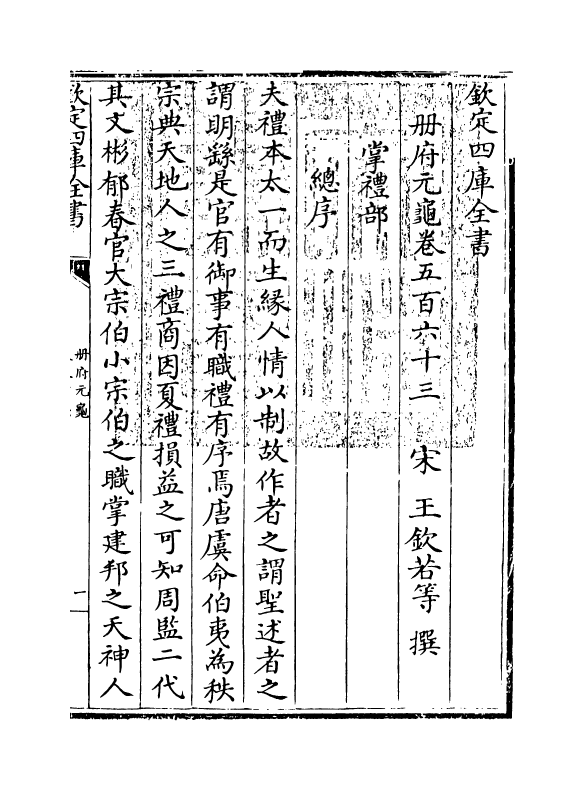 欽定四庫全書
册府元龜卷五百六十三　宋　王欽若等　撰
掌禮部
總序
夫禮本太一而生緣人情以制故作者之謂聖述者之
謂明繇是官有御事有職禮有序焉唐虞命伯夷為秩
宗典天地人之三禮商因夏禮損益之可知周監二代
其文彬郁春官大宗伯小宗伯之職掌建邦之天神人
欽定四庫全書
册府元龜
一